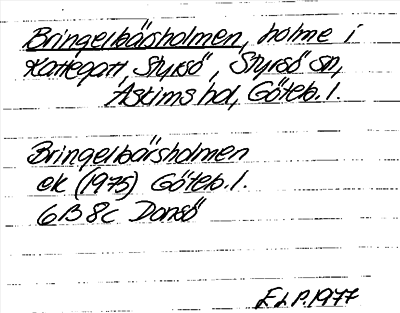 Bringelbärsholmen, holme i
Kattegatt, Styrsö, Styrsö sn,
Askims hd, Göteb. l.
Bringelbärsholmen
ek (1975) Göteb. l.
6B 8c Donsö
E L P. 1977